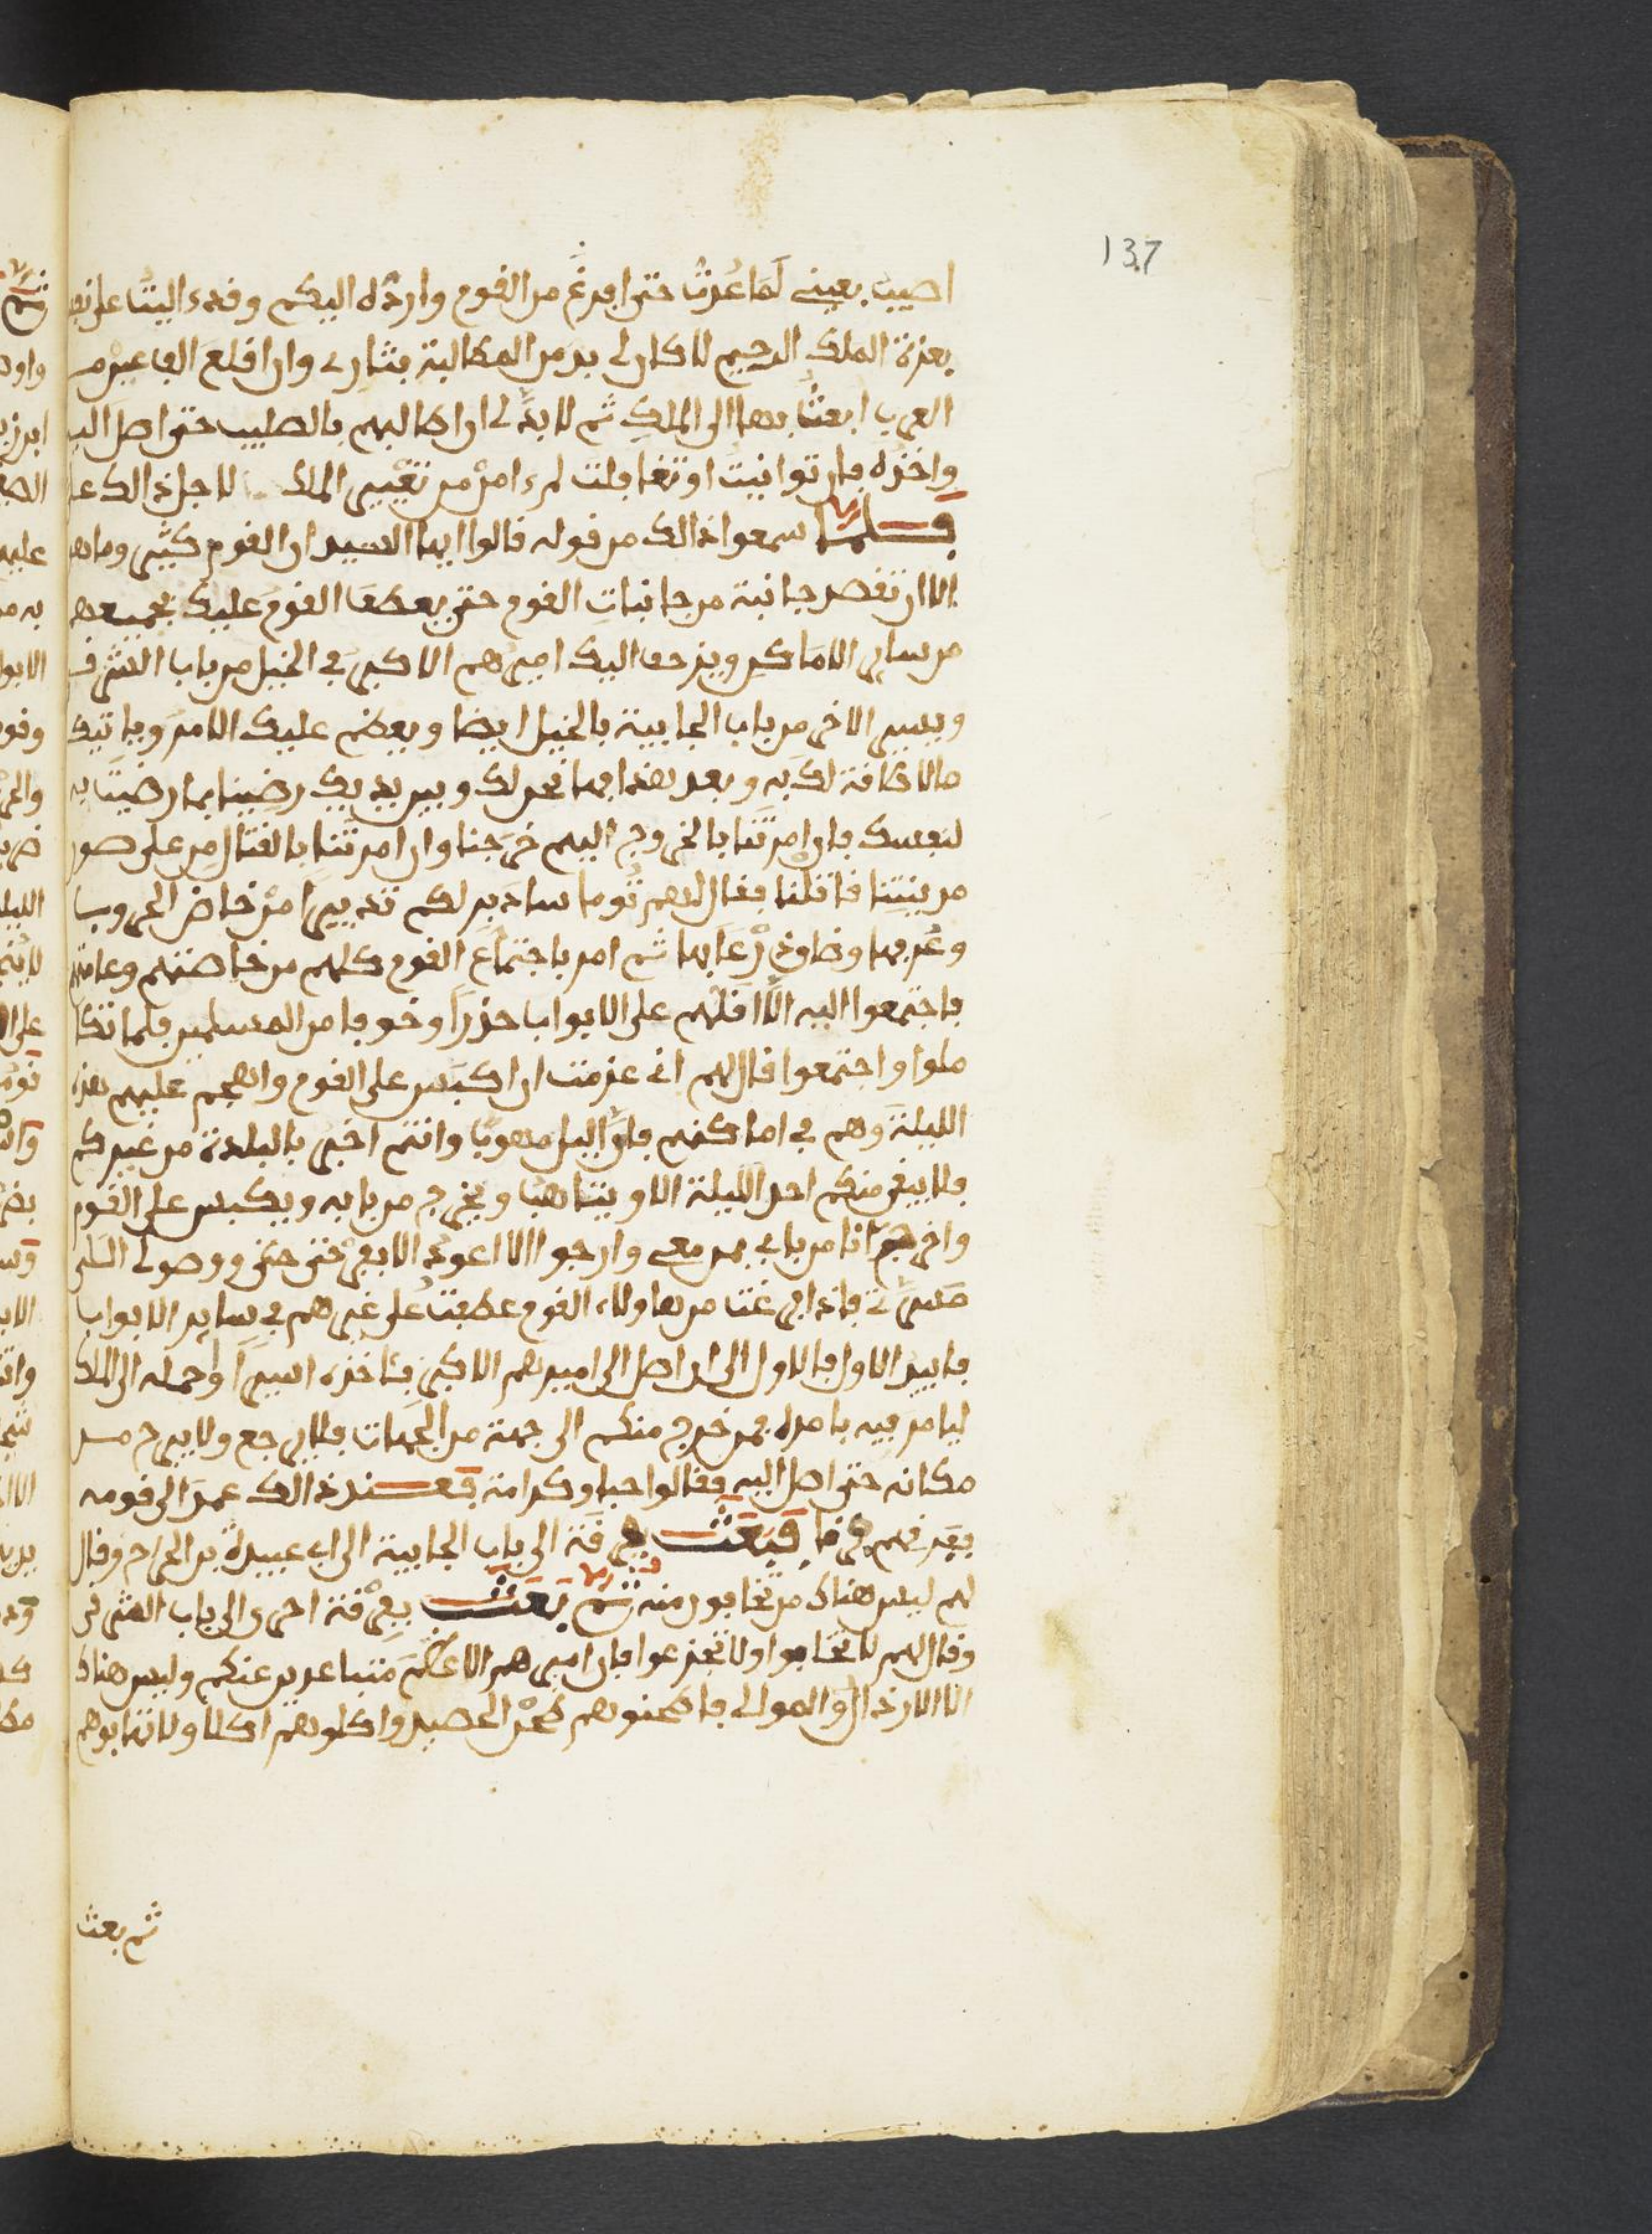 137
اصيب بعينى لما عدت حتى افرغ من القوم وارده اليكم وقد ءاليت على نفسى
بعزة الملك الرحيم لا كان لى بد من المطالبة بثارى وان اقلع الف عين من
العرب ابعث بها الى الملك ثم لا بد لى ان اطالبهم بالصليب حتى اصل اليه
واخذه فان توانيت او تغافلت لم ءامن من تغيير الملك لاجل ذالك على
فلما سمعوا ذالك من قوله قالوا ايها السيد ان القوم كثير وما هو
الا ان تقصد جانبة من جانبات القوم حتى يعطف القوم عليك بجميعهم
من ساير الاماكن ويزحف اليك اميرهم الاكبر فى الخيل من باب الشرقى
ويسير الاخر من باب الجابية بالخيل ايضا ويعظم عليك الامر وياتيك
ما لا طاقة لك به وبعد هذا فها نحن لك وبين يديك رضينا بما رضيت به
لنفسك فان امرتنا بالخروج اليهم خرجنا وان امرتنا بالقتال من على صور
مدينتنا قاتلنا فقال لهم توما سادبر لكم تدبير من خاض الحروب
وعرفها وذاق رعابها ثم امر باجتماع القوم كلهم من خاصتهم وعامتهم
فاجتمعوا اليه الا اقلهم على الابواب حذرا وخوفا من المسلمين فلما تكا
ملوا واجتمعوا قال لهم انى عزمت ان اكبس على القوم واهجم عليهم هذه
الليلة وهم فى اماكنهم فان اليل مهوبا وانتم اخبر بالبلدة من غيركم
فلا يبقى منكم احد الليلة الا ويتاهب ويخرج من بابه ويكبس على القوم
واخرج انا من بابى بمن معى وارجوا الا اعود الا بفرحتى ووصولى الى
مسرتى فاذا فرغت من هاولاء القوم عطفت على غيرهم فى ساير الابواب
فابيد الاول فالاول الى ان اصل الى اميرهم الاكبر فئاخذه اسيرا واحمله الى الملك
ليامر فيه بامره فمن خرج منكم الى جهة من الجهات فلا يرجع ولا يبرح من
مكانه حتى اصل اليه فقالوا حبا وكرامة فعند ذالك عمد الى قومه
ففرقهم فرقا فبعث بفرقة الى باب الجابية الى ابى عبيدة بن الجراح وقال
لهم ليس هناك من تخافون منه ثم بعث بفرقة اخرى الى باب الشرقى
وقال لهم لا تخافوا ولا تجزعوا فان اميرهم الاعظم متباعد عنكم وليس هناك
الا الارذال والموالى فاطحنوهم طحن الحصيد واكلوهم اكلا ولا تهابوهم
ثم بعث